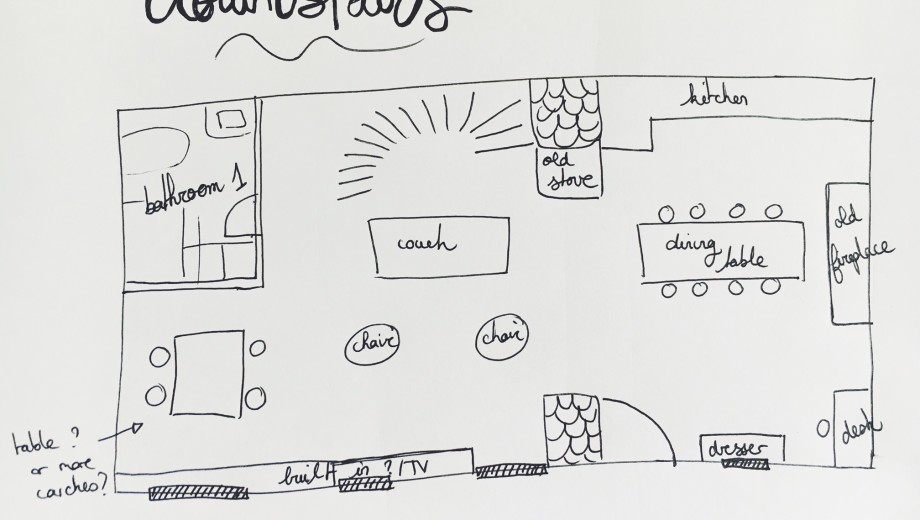 downstairs
kitchen
old
stove
bathroom 1
old
fireplace
couch
dining
table
chair
chair
table?
or more
couches?
desk
dresser
built in ? / TV